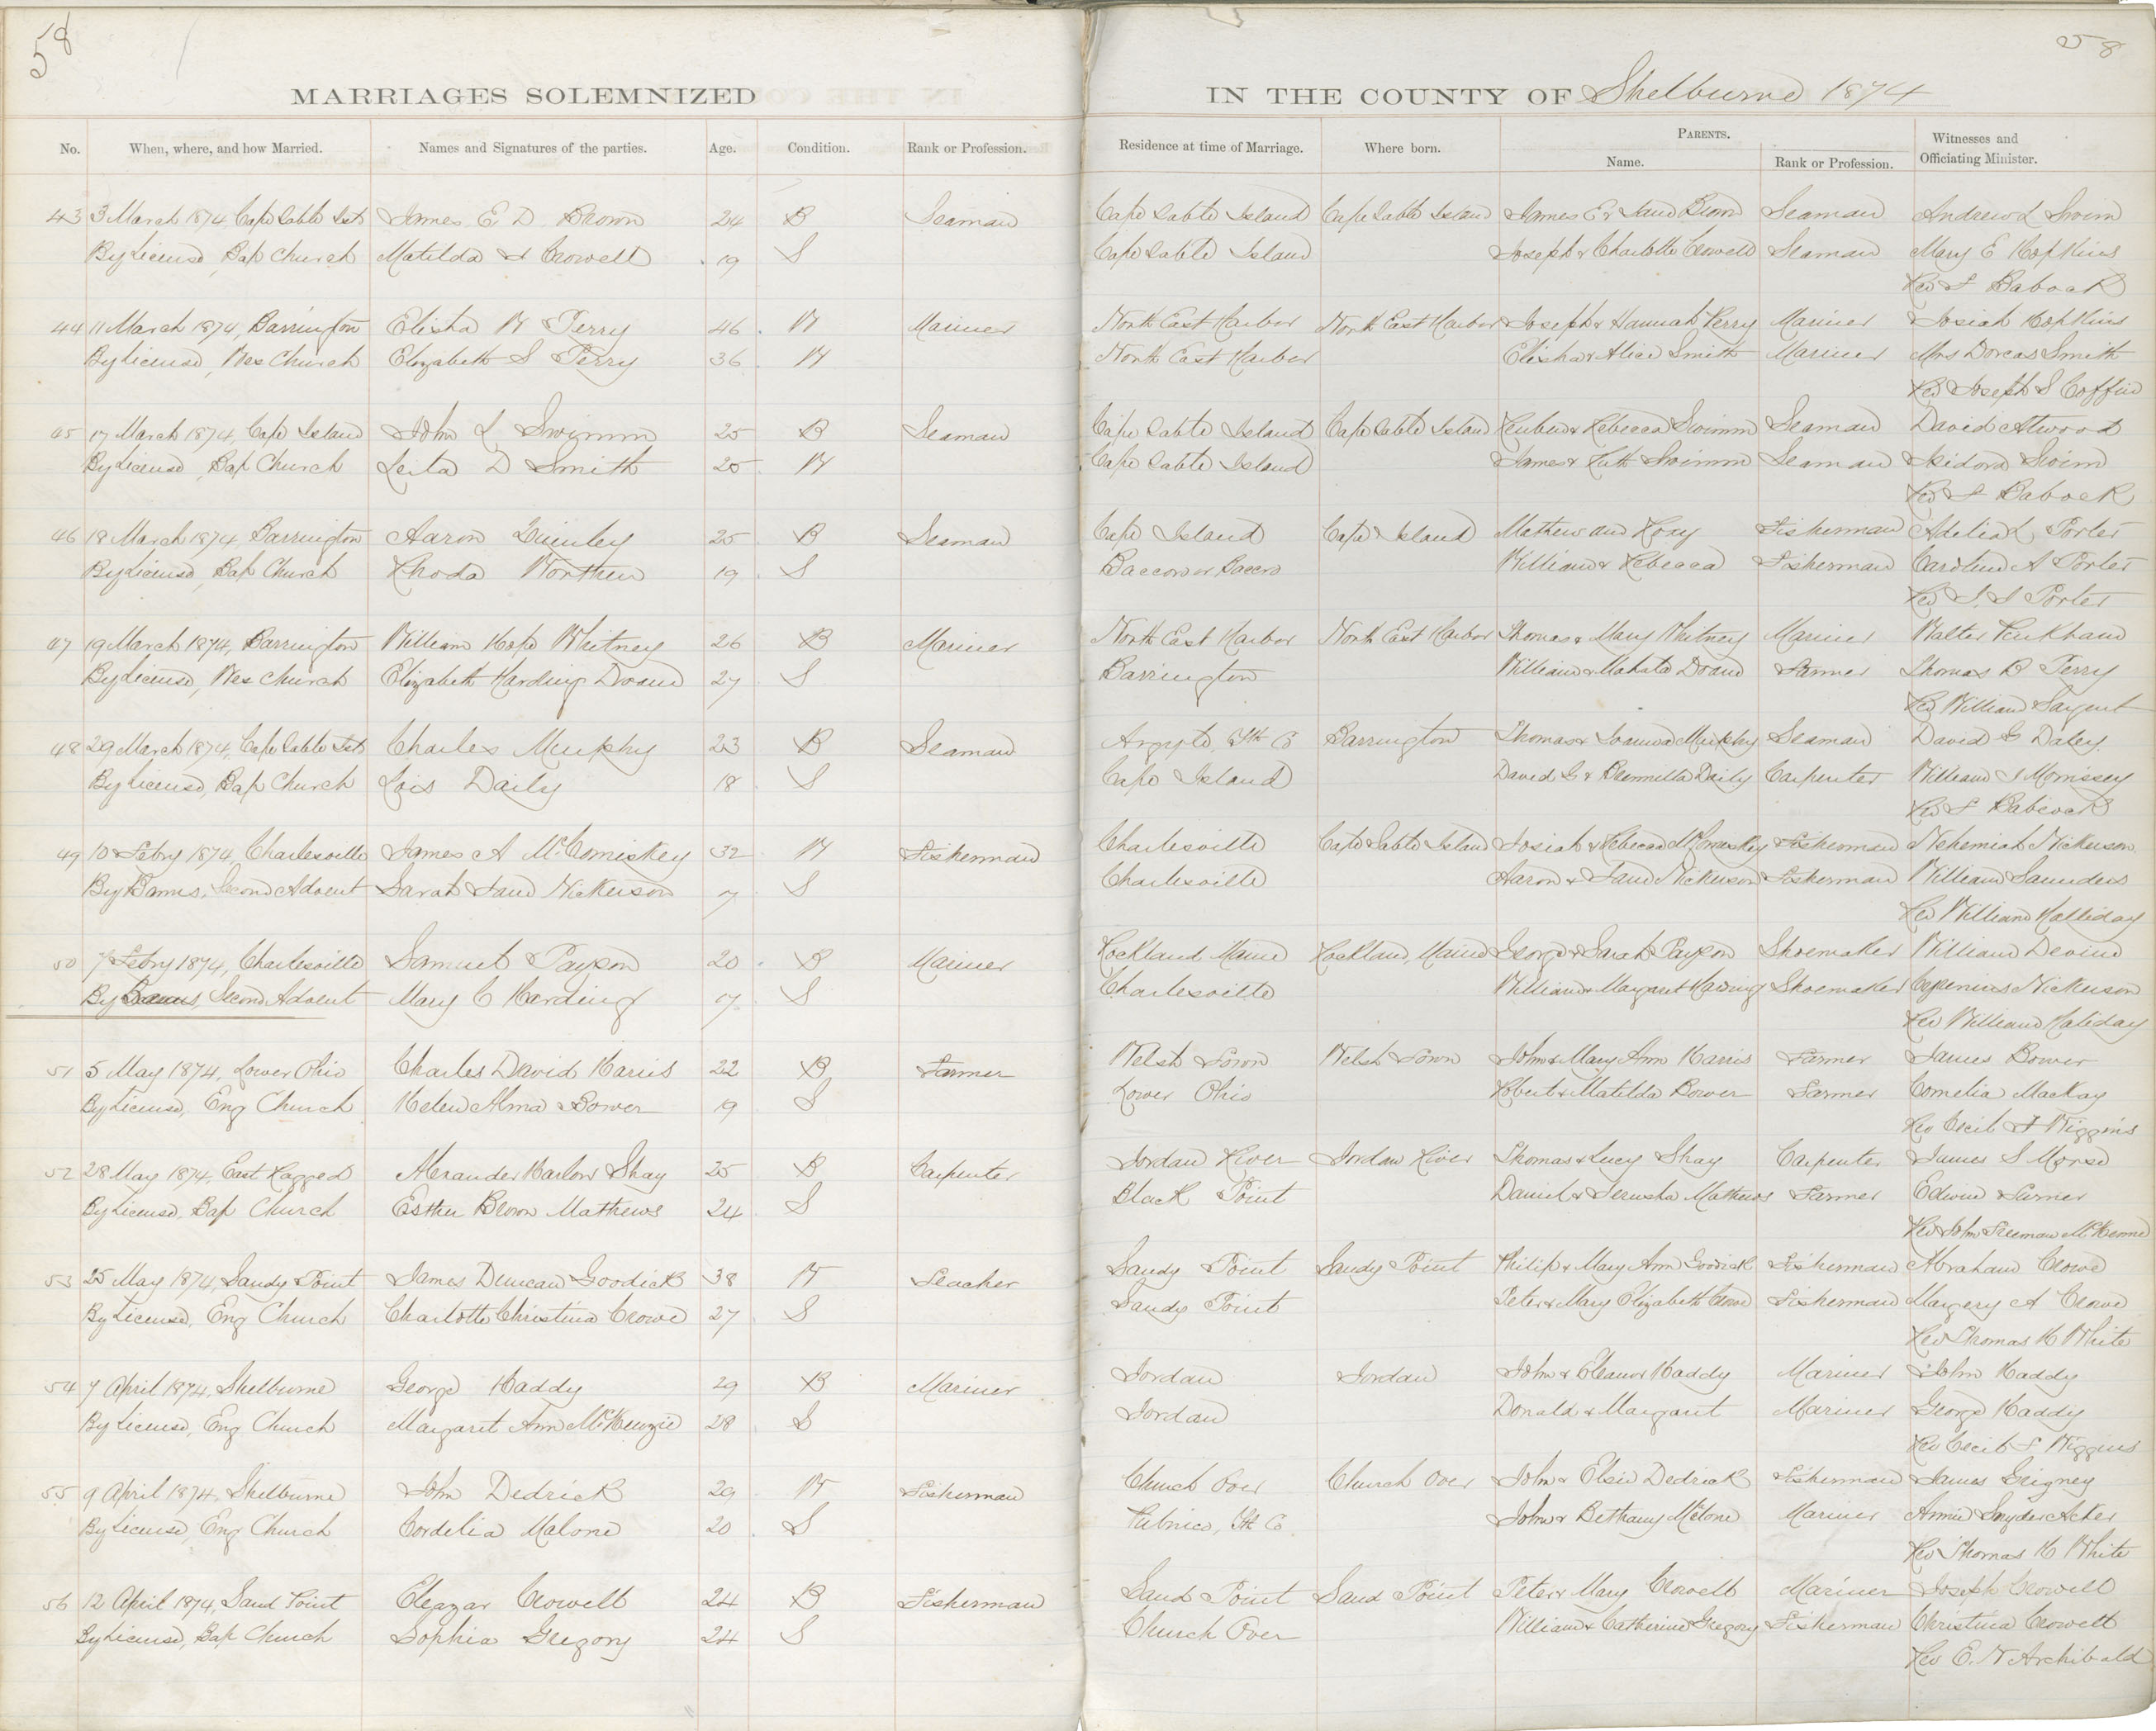 58
58
MARRIAGES SOLEMNIZED IN THE COUNTY OF Shelburne 1874
No. When, where, and how Married. Names and Signatures of the parties. Age. Condition. Rank or Profession. Residence at time of Marriage. Where born. PARENTS. Name. Rank or Profession. Witnesses and Officiating Minister.
43 3 March 1874, Cape Sable Isd James E D Brown 24 B Seaman Cape Sable Island Cape Sable Island James E & Jane Brown Seaman Andrew L Swim
By License, Bap Church Matilda Crowell 19 S Cape Sable Island Joseph & Charlotte Crowell Seaman Mary E Hopkins
Rev Babcock
44 11 March 1874, Barrington Elisha W Perry 46 W Mariner North East Harbor North East Harbor Joseph & Hannah Perry Mariner Josiah Hopkins
By License, Wes Church Elizabeth S Perry 36 W North East Harbor Elisha & Alice Smith Mariner Mrs Dorcas Smith
Rev Joseph S Coffin
45 17 March 1874, Cape Island John L Swimm 25 B Seaman Cape Sable Island Cape Sable Island Reuben & Rebecca Swimm Seaman David Atwood
By License, Bap Church Leita D Smith 25 W Cape Sable Island James & Ruth Swimm Seaman Isidora Swim
Rev Babcock
46 18 March 1874, Barrington Aaron Quinley 25 B Seaman Cape Island Cape Island Mathew and Roxy Fisherman Adelia L Porter
By License, Bap Church Rhoda Worthen 19 S Baccoro or Baccro William & Rebecca Fisherman Caroline A Porter
Rev Porter
47 19 March 1874, Barrington William Hope Whitney 26 B Mariner North East Harbor North East Harbor Thomas & Mary Whitney Mariner Walter Kirkham
By License, Wes Church Elizabeth Harding Doane 27 S Barrington William & Mahala Doane Farmer Thomas B Perry
Rev William Sargent
48 29 March 1874, Cape Sable Isd Charles Murphy 23 B Seaman Argyle, Yth Co Barrington Thomas & Joanna Murphy Seaman David G Daley
By License, Bap Church Lois Daily 18 S Cape Island David G & Daily Carpenter William J Morrissey
Rev Babcock
49 10 Febry 1874, Charlesville James A McComiskey 32 W Fisherman Charlesville Cape Sable Island Josiah & Rebecca McComiskey Fisherman Nehemiah Nickerson
By Banns, Second Advent Sarah Jane Nickerson 17 S Charlesville Aaron & Jane Nickerson Fisherman William Saunders
Rev William Halliday
50 7 Febry 1874, Charlesville Samuel Payson 20 B Mariner Rockland Maine Rockland, Maine George & Sarah Payson Shoemaker William Devine
By Banns, Second Advent Mary C Harding 17 S Charlesville William & Margaret Harding Shoemaker Nickerson
Rev William Haliday
51 5 May 1874, Lower Ohio Charles David Harris 22 B Farmer Welsh Town Welsh Town John & Mary Ann Harris Farmer James Bower
By License, Eng Church Helen Alma Bower 19 S Lower Ohio Robert & Matilda Bower Farmer Cornelia MacKay
Rev Cecil F Wiggins
52 28 May 1874, East Ragged Alexander Harlow Shay 25 B Carpenter Jordan River Jordan River Thomas & Lucy Shay Carpenter James S Morse
By License, Bap Church Esther Brown Mathews 24 S Black Point Daniel & Jerusha Mathews Farmer Edwin Turner
Rev John Freeman McKenne
53 25 May 1874, Sandy Point James Duncan Goodick 38 W Teacher Sandy Point Sandy Point Philip & Mary Ann Goodick Fisherman Abraham Crowe
By License, Eng Church Charlotte Christina Crowe 27 S Sandy Point Peter & Mary Elizabeth Crowe Fisherman Margery A Crowe
Rev Thomas H White
54 7 April 1874, Shelburne George Haddy 29 B Mariner Jordan Jordan John & Eleanor Haddy Mariner John Haddy
By License, Eng Church Margaret Ann McKenzie 28 S Jordan Donald & Margaret Mariner George Haddy
Rev Cecil F Wiggins
55 9 April 1874, Shelburne John Dedrick 29 W Fisherman Church Over Church Over John & Elsie Dedrick Fisherman James Grigney
By License, Eng Church Cordelia Malone 20 S Pubnico, Yth Co. John & Bethany Melone Mariner Annie Snyder Acker
Rev Thomas H White
56 12 April 1874, Sand Point Eleazar Crowell 24 B Fisherman Sand Point Sand Point Peter & Mary Crowell Mariner Joseph Crowell
By License, Bap Church Sophia Gregory 24 S Church Over William & Catherine Gregory Fisherman Christina Crowell
Rev E. N Archibald